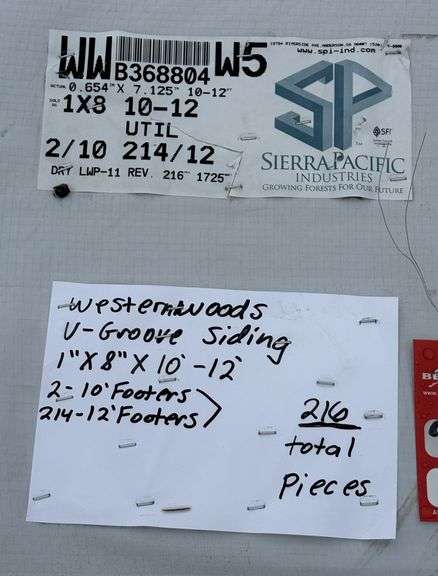 WW B368804 W5
ACTUAL 0.654" X 7.125" 10-12FT
SOLD AS 1X8 10-12
UTIL
2/10 214/12
DRY LWP-11 REV. 216" 1725"
www.spi-ind.com
SP
SFI
SIERRA PACIFIC
INDUSTRIES
GROWING FORESTS FOR OUR FUTURE
Western Woods
V-Groove Siding
1"X8"X10'-12'
2-10' Footers
214-12' Footers
216
total
Pieces